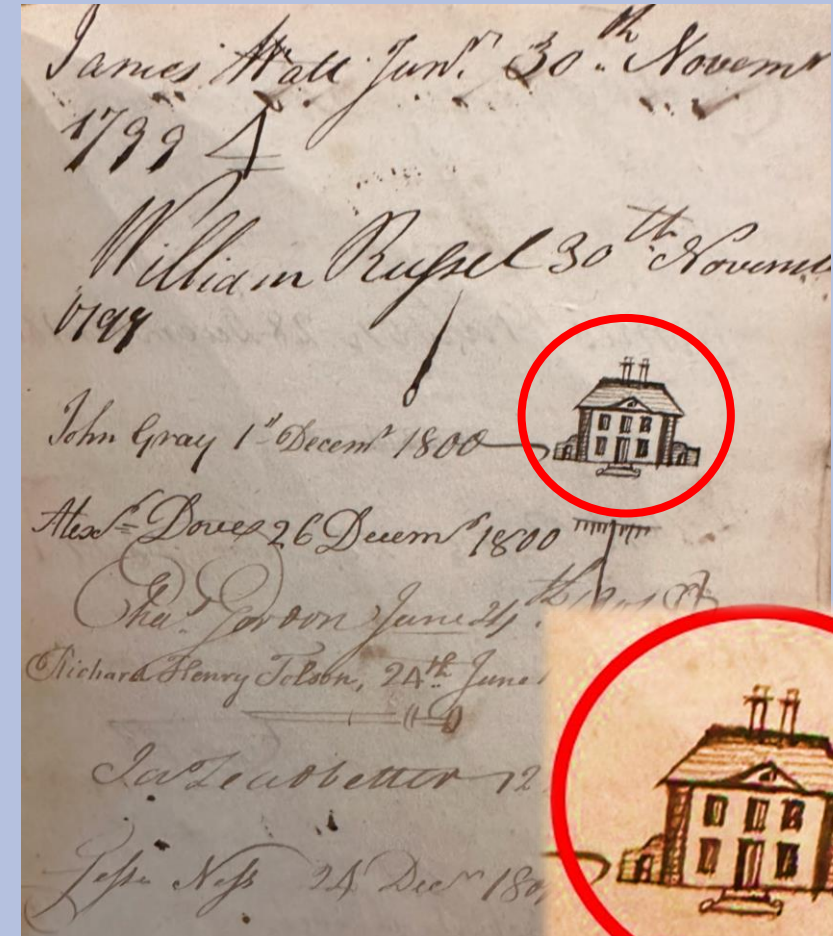 James Wall Junr. 30th. Novemr
1799
William Rufsel 30th Novem
1799
John Gray 1st Decemr 1800
Alexr. Dove 26 Decemr 1800
Chas. Gordon June 24th
Richard Henry Tolson, 24th. June
Jas Leadbetter 12
Jefse Nefs 24 Decr 180